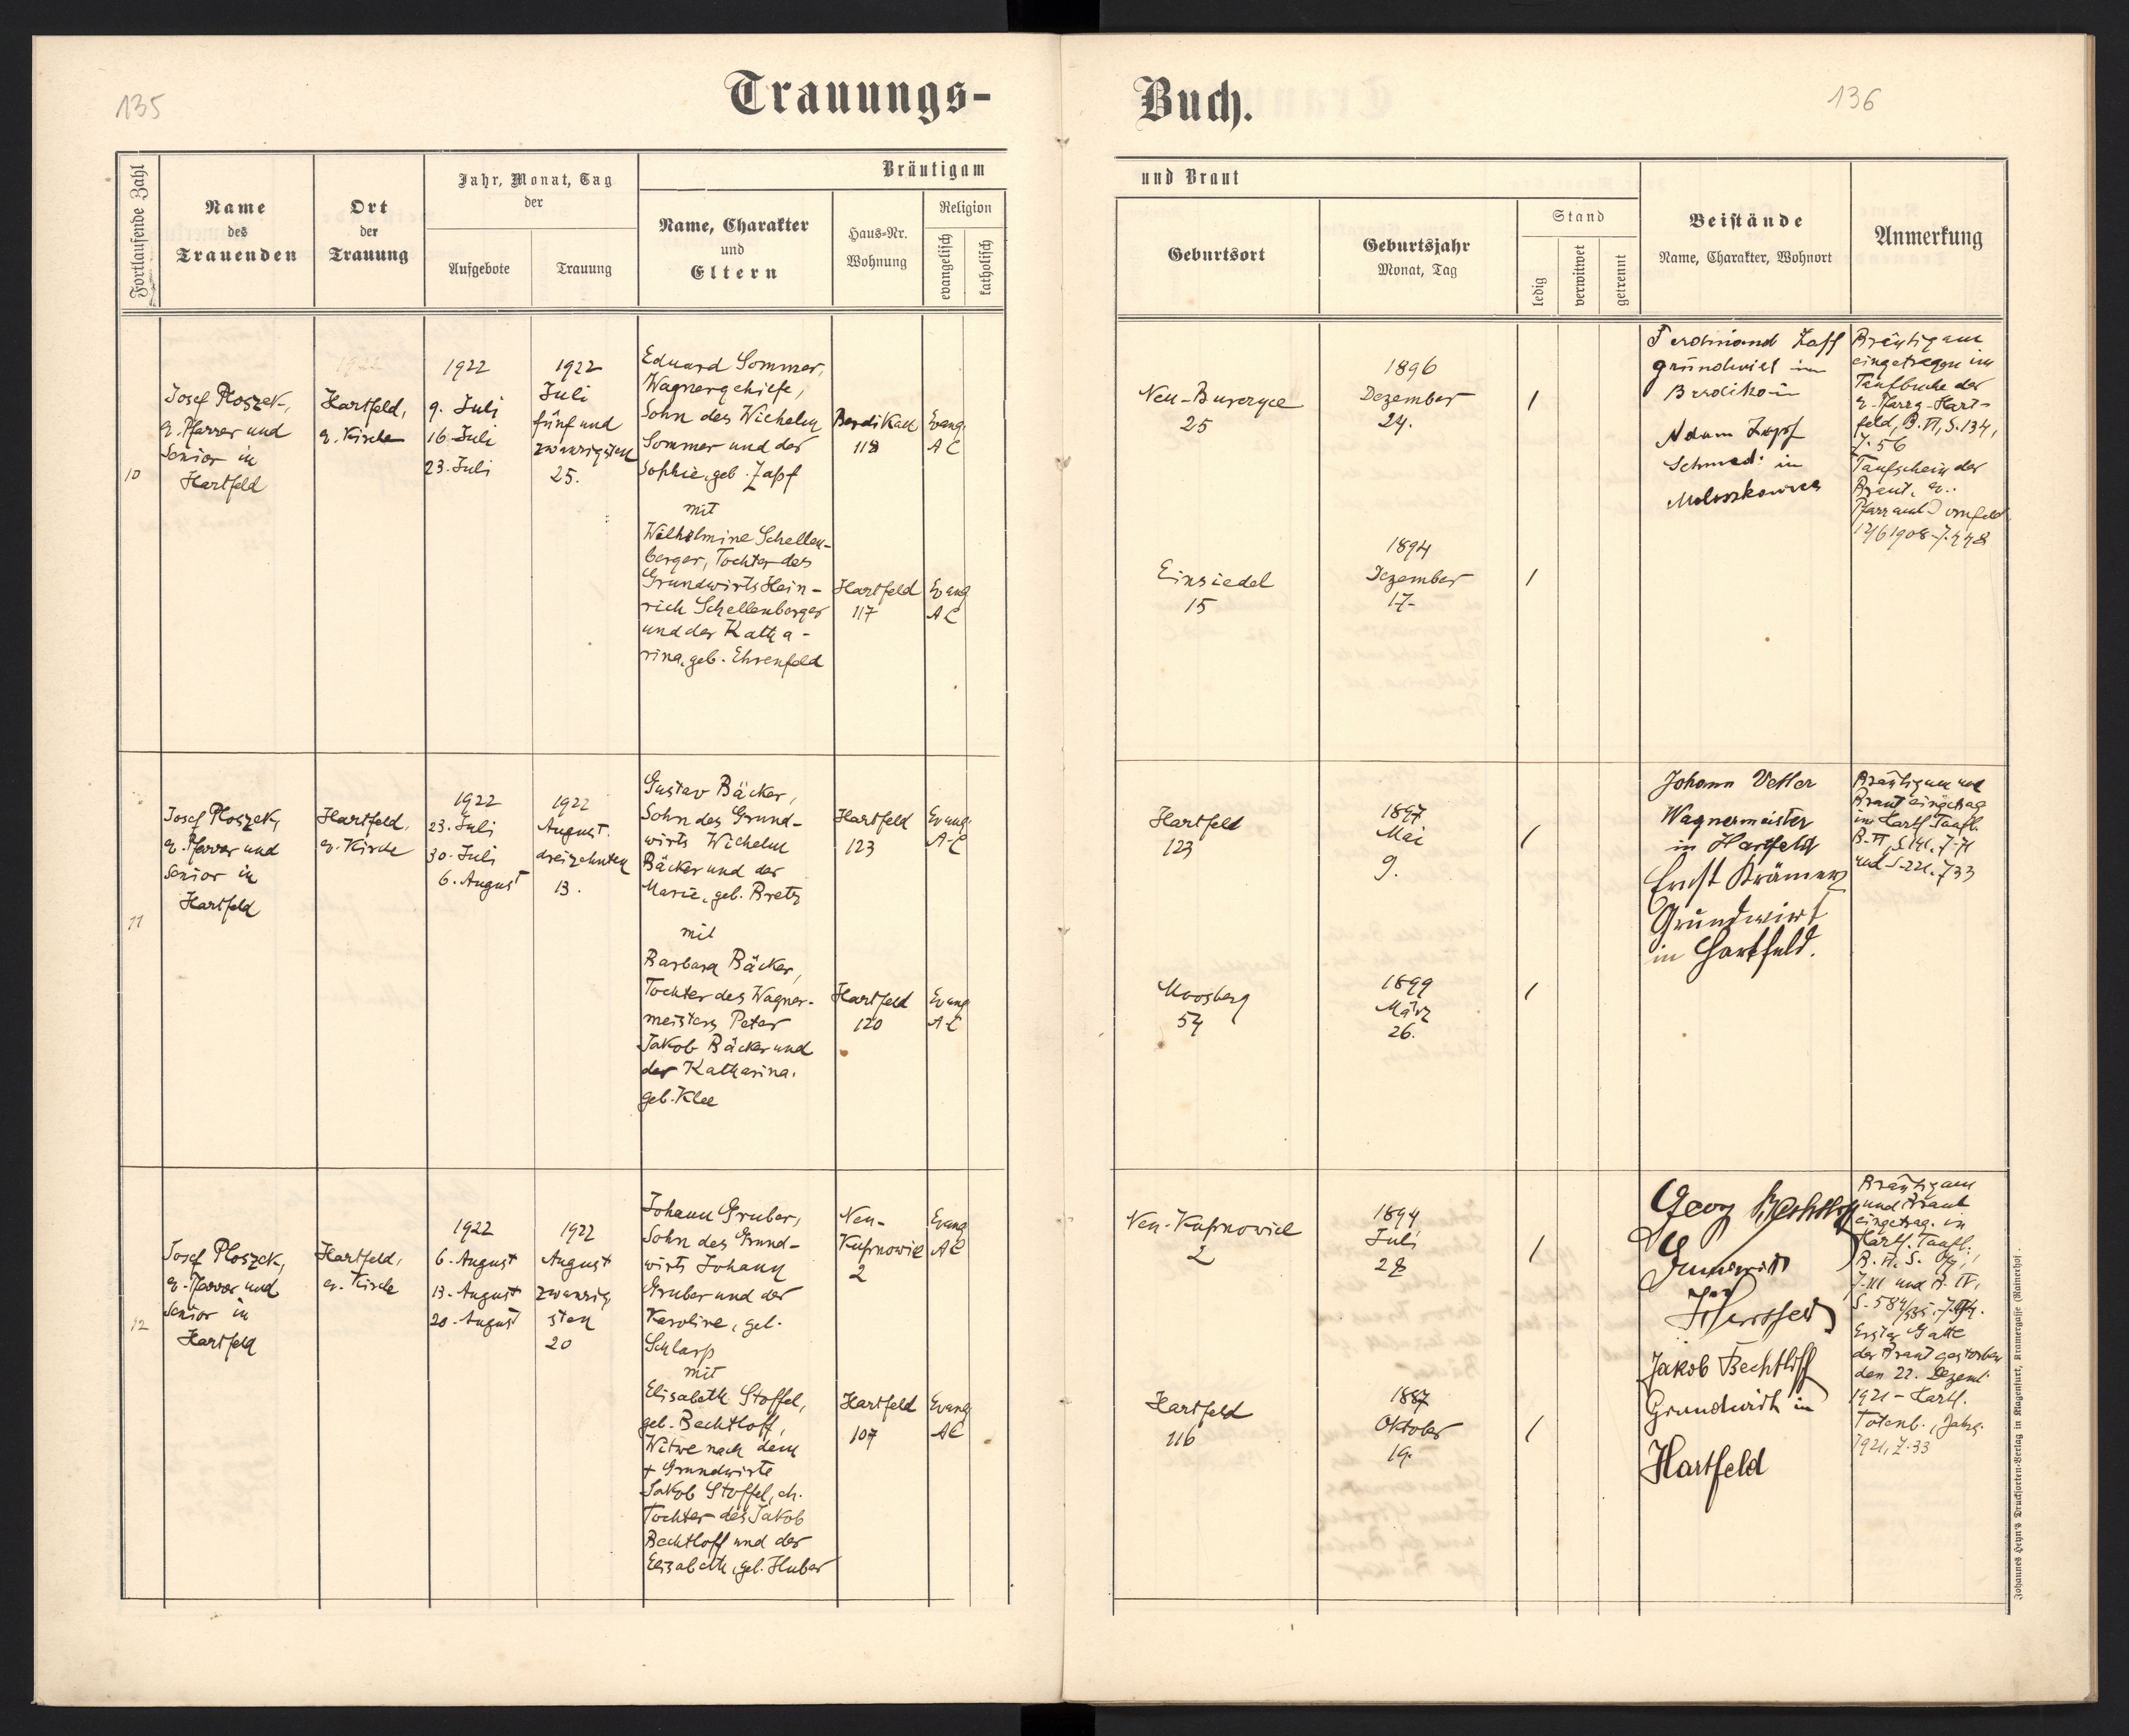 135
Trauungs-
Buch.
136
Fortlaufende Zahl
Name
des
Trauenden
Ort
der
Trauung
Jahr, Monat, Tag
der
Aufgebote
Trauung
Bräutigam
Name, Charakter
und
Eltern
Haus-Nr.
Wohnung
Religion
evangelisch
katholisch
und Braut
Geburtsort
Geburtsjahr
Monat, Tag
Stand
ledig
verwitwet
getrennt
Beistände
Name, Charakter, Wohnort
Anmerkung
10
Josef Ploszek,
e. Pfarrer und
Senior in
Hartfeld
1922
Hartfeld,
e. Kirche
1922
9. Juli
16. Juli
23. Juli
1922
Juli
fünf und
zwanzigsten
25.
Eduard Sommer,
Wagnergehilfe,
Sohn des Wilhelm
Sommer und der
Sophie, geb. Zapf
mit
Wilhelmine Schellen-
berger, Tochter des
Grundwirts Hein-
rich Schellenberger
und der Katha-
rina, geb. Ehrenfeld
Berdikau
118
Evang.
AC
Hartfeld
117
Evang
AC
Neu-
25
Einsiedel
15
1896
Dezember
24.
1894
Dezember
17.
/
/
Ferdinand
grundwirt in
Adam Zapf
Schmed in
Bräutigam
eingetragen im
Taufbuche der
e. Pfarrg. Hart-
feld, B. VI, S. 134,
Z. 56
Taufschein der
Braut, e.
Pfarramt Dornfeld
12/6 1908
11
Josef Ploszek,
e. Pfarrer und
Senior in
Hartfeld
Hartfeld,
e. Kirche
1922
23. Juli
30. Juli
6. August
1922
August
dreizehnten
13.
Gustav Bäcker,
Sohn des Grund-
wirts Wilhelm
Bäcker und der
Marie, geb. Bretz
mit
Barbara Bäcker,
Tochter des Wagner-
meisters Peter
Jakob Bäcker und
der Katharina,
geb. Klee
Hartfeld
123
Evang.
A.C
Hartfeld
120
Evang
AC
Hartfeld
123
Moosberg
54
1897
Mai
9.
1899
März
26.
/
/
Johann Vetter
Wagnermeister
in Hartfeld
Ernst Krämer
Grundwirt
in Hartfeld.
Bräutigam und
Braut eingetrag
im Hartf. Taufb.
B. VI,
und S. 221, Z 33
12
Josef Ploszek,
e. Pfarrer und
Senior in
Hartfeld
Hartfeld,
e. Kirche
1922
6. August
13. August
20. August
1922
August
zwanzig
sten
20
Johann Gruber,
Sohn des Grund-
wirts Johann
Gruber und der
Karoline, geb.
Schlarp
mit
Elisabeth Stoffel,
geb. Bechtloff,
Witwe nach dem
+ Grundwirte
Jakob Stoffel, eh.
Tochter des Jakob
Bechtloff und der
Elisabeth, geb. Huber
Neu-
Kupnowice
2
Evang
AC
Hartfeld
107
Evang
AC
Neu-Kupnowice
2
Hartfeld
116
1894
Juli
1887
Oktober
19.
/
/
Georg Bechtloff
Jakob Bechtloff
Grundwirth in
Hartfeld
Bräutigam
und Braut
eingetrag. in
Hartf. Taufb.:
Erster Gatte
der Braut gestorben
den 22. Dezemb
1921 - Hartf.
Totenb., Jahrg.
1921, Z. 33
Johannes Heyn's Drucksorten-Verlag in Klagenfurt, Kramergasse (Rainerhof).